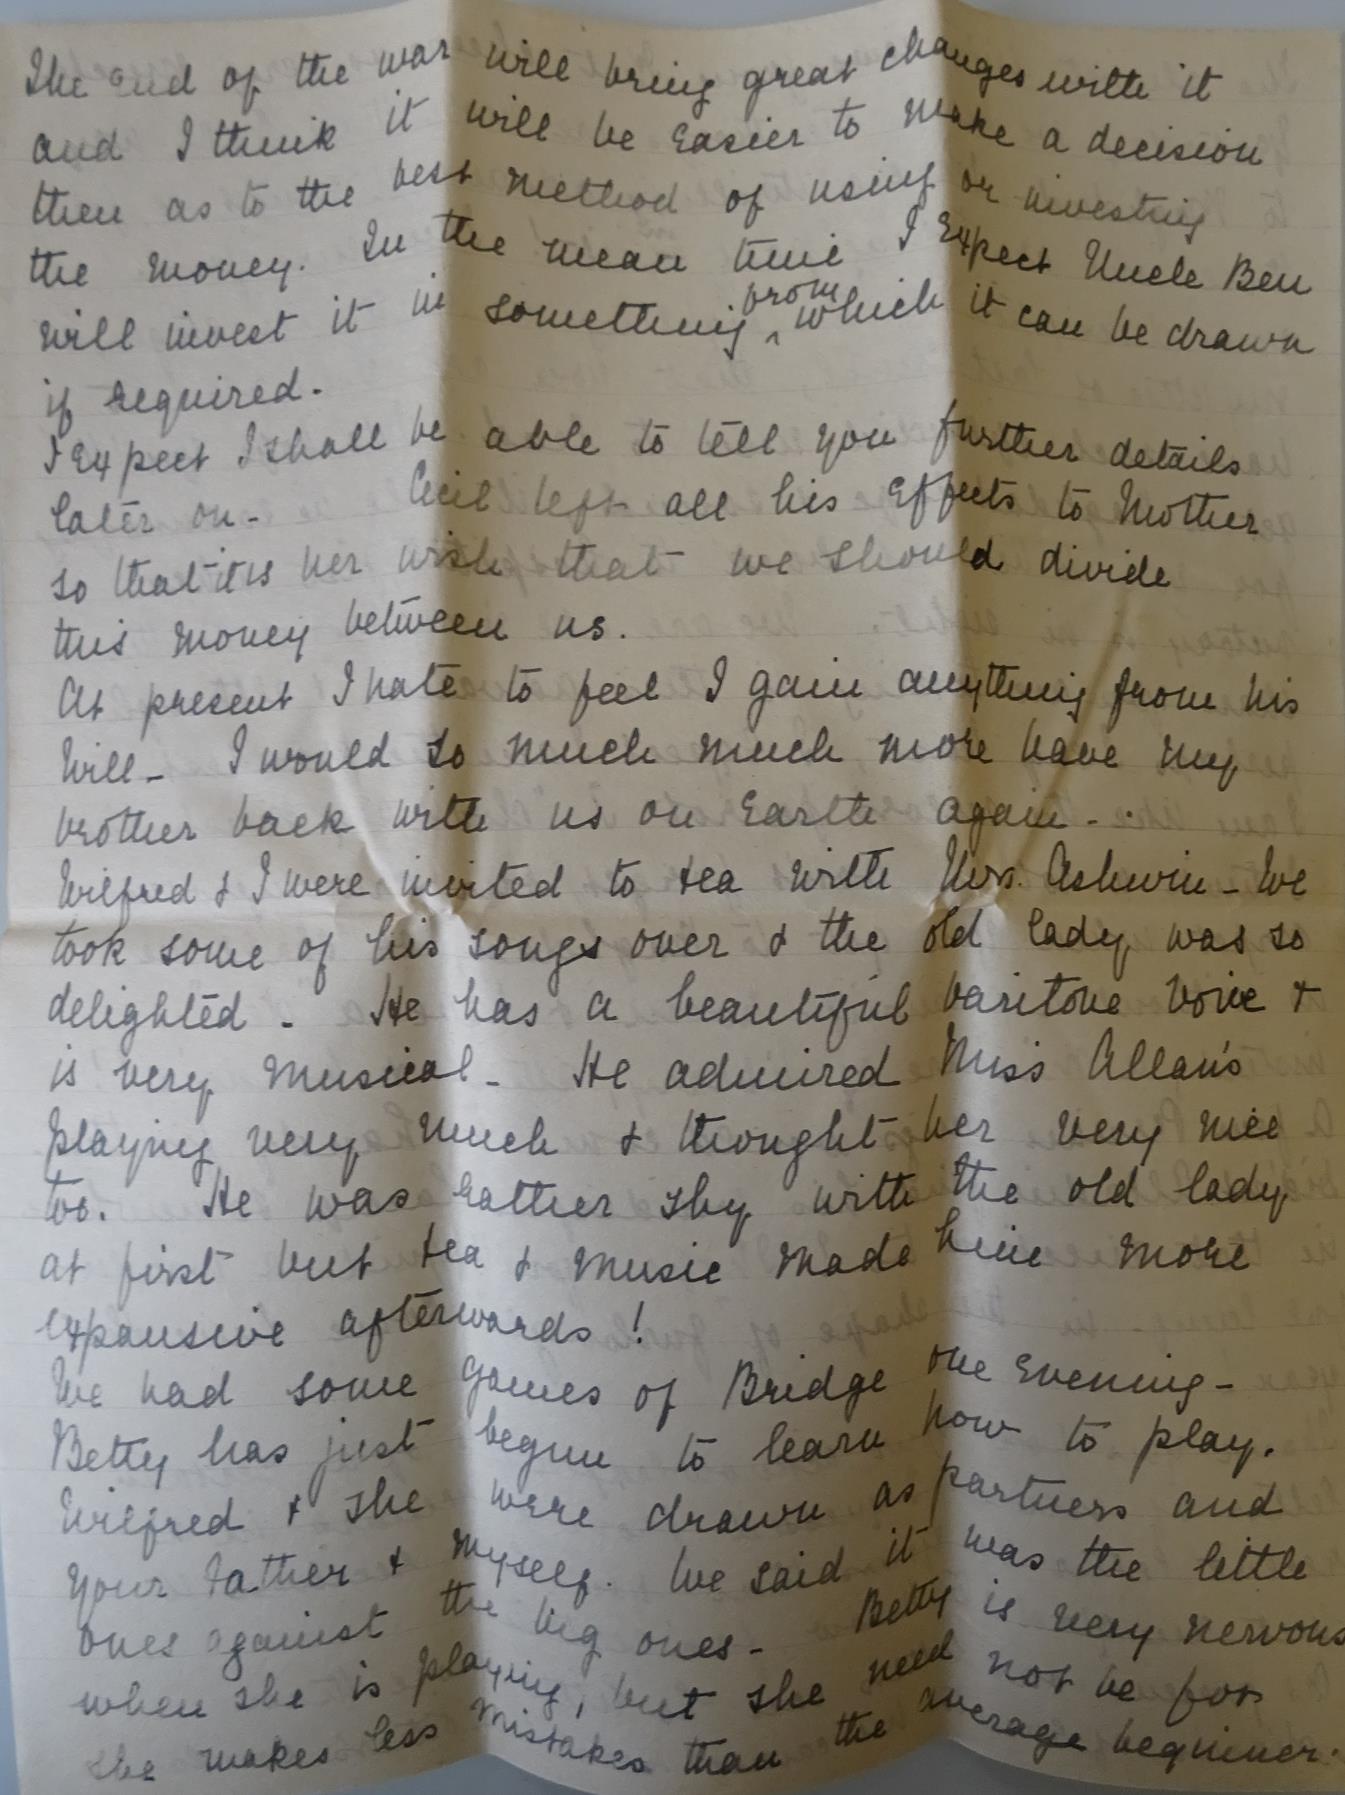 The end of the war will bring great changes with it
and I think it will be easier to make a decision
then as to the best method of using or investing
the money. In the mean time I expect Uncle Ben
will invest it in something from which it can be drawn
if required.
I expect I shall be able to tell you further details
later on - Cecil left all his effects to Mother
so that it is her wish that we should divide
this money between us.
At present I hate to feel I gain anything from his
Will - I would so much much more have my
brother back with us on Earth again -.
Wilfred & I were invited to tea with Mrs. Ashwin - We
took some of his songs over & the old lady was so
delighted - He has a beautiful baritone voice &
is very musical - He admired Miss Allan's
playing very much & thought her very nice
too. He was rather shy with the old lady
at first but tea & music made him more
expansive afterwards!
We had some games of Bridge one Evening -
Betty has just begun to learn how to play.
Wilfred & she were drawn as partners and
your Father & myself. We said it was the little
ones against the big ones - Betty is very nervous
when she is playing, but she need not be for
she makes less mistakes than the average beginner.